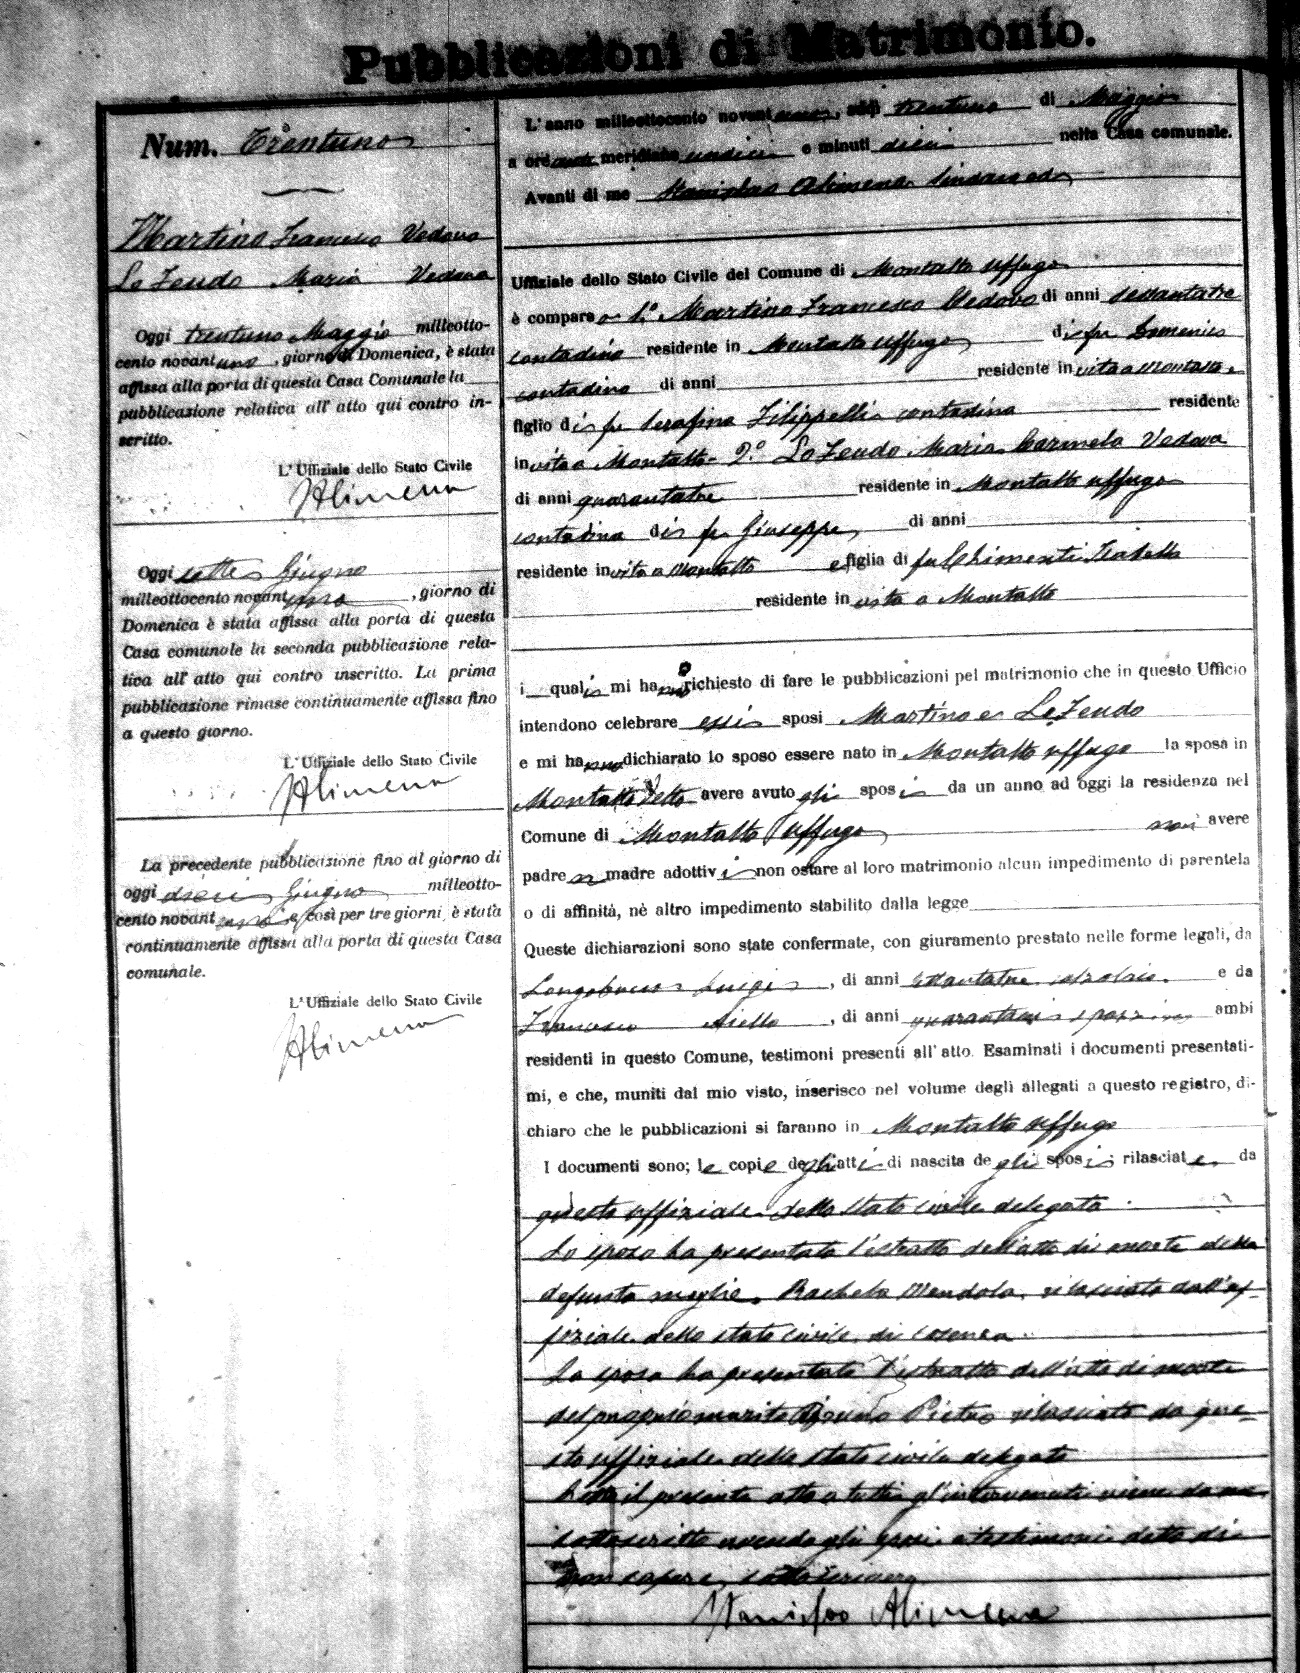 Pubblicazioni di Matrimonio.
Num. Trentuno
Martino Francesco Vedovo
Lo Feudo Maria Vedova
Oggi trentuno Maggio milleotto-
cento novantuno, giorno di Domenica, è stata
affissa alla porta di questa Casa Comunale la
pubblicazione relativa all' atto qui contro in-
scritto.
L' Uffiziale dello Stato Civile
SAlimena
Oggi sette Giugno
milleottocento novantuno, giorno di
Domenica è stata affissa alla porta di questa
Casa comunale la seconda pubblicazione rela-
tiva all' atto qui contro inscritto. La prima
pubblicazione rimase continuamente affissa fino
a questo giorno.
L' Uffiziale dello Stato Civile
SAlimena
La precedente pubblicazione fino al giorno di
oggi dieci Giugno milleotto-
cento novantuno e così per tre giorni, è stata
continuamente affissa alla porta di questa Casa
comunale.
L' Uffiziale dello Stato Civile
SAlimena
L' anno milleottocento novantuno, addì trentuno di Maggio
a ore meridiane undici e minuti dieci nella Casa comunale.
Avanti di me Stanislao Alimena Sindaco ed
Uffiziale dello Stato Civile del Comune di Montalto Uffugo
è comparso 1.° Martino Francesco Vedovo di anni sessantatre
contadino residente in Montalto Uffugo di fu Domenico
contadino di anni residente in vita a Montalto e
figlio di fu Serafina Filippelli contadina residente
in vita a Montalto - 2.° Lo Feudo Maria Carmela Vedova
di anni quarantatre residente in Montalto Uffugo
contadina di fu Giuseppe, di anni
residente in vita a Montalto e figlia di fu Chimenti Isabella
residente in vita a Montalto
i quali mi hanno richiesto di fare le pubblicazioni pel matrimonio che in questo Ufficio
intendono celebrare essi sposi Martino e Lo Feudo
e mi hanno dichiarato lo sposo essere nato in Montalto Uffugo la sposa in
Montalto detto avere avuto gli sposi da un anno ad oggi la residenza nel
Comune di Montalto Uffugo non avere
padre n madre adottivi non ostare al loro matrimonio alcun impedimento di parentela
o di affinità, nè altro impedimento stabilito dalla legge
Queste dichiarazioni sono state confermate, con giuramento prestato nelle forme legali, da
Longobucco Luigi, di anni e da
Francesco Aiello, di anni ambi
residenti in questo Comune, testimoni presenti all' atto. Esaminati i documenti presentati-
mi, e che, muniti dal mio visto, inserisco nel volume degli allegati a questo registro, di-
chiaro che le pubblicazioni si faranno in Montalto Uffugo
I documenti sono; le copie degli atti di nascita degli sposi rilasciate da
questo uffiziale dello stato civile delegato
Lo sposo ha presentato l'estratto dell'atto di morte della
defunta moglie, Rachela Mendola, rilasciato dall'uf-
fiziale dello stato civile di Cosenza
La sposa ha presentato l'estratto dell'atto di morte
del proprio marito Bruno Pietro rilasciato da que-
sto uffiziale dello stato civile delegato
Letto il presente atto a tutti gl'intervenuti viene da me
sottoscritto avendo gli sposi e testimoni detto di
non sapere sottoscrivere
Stanislao Alimena